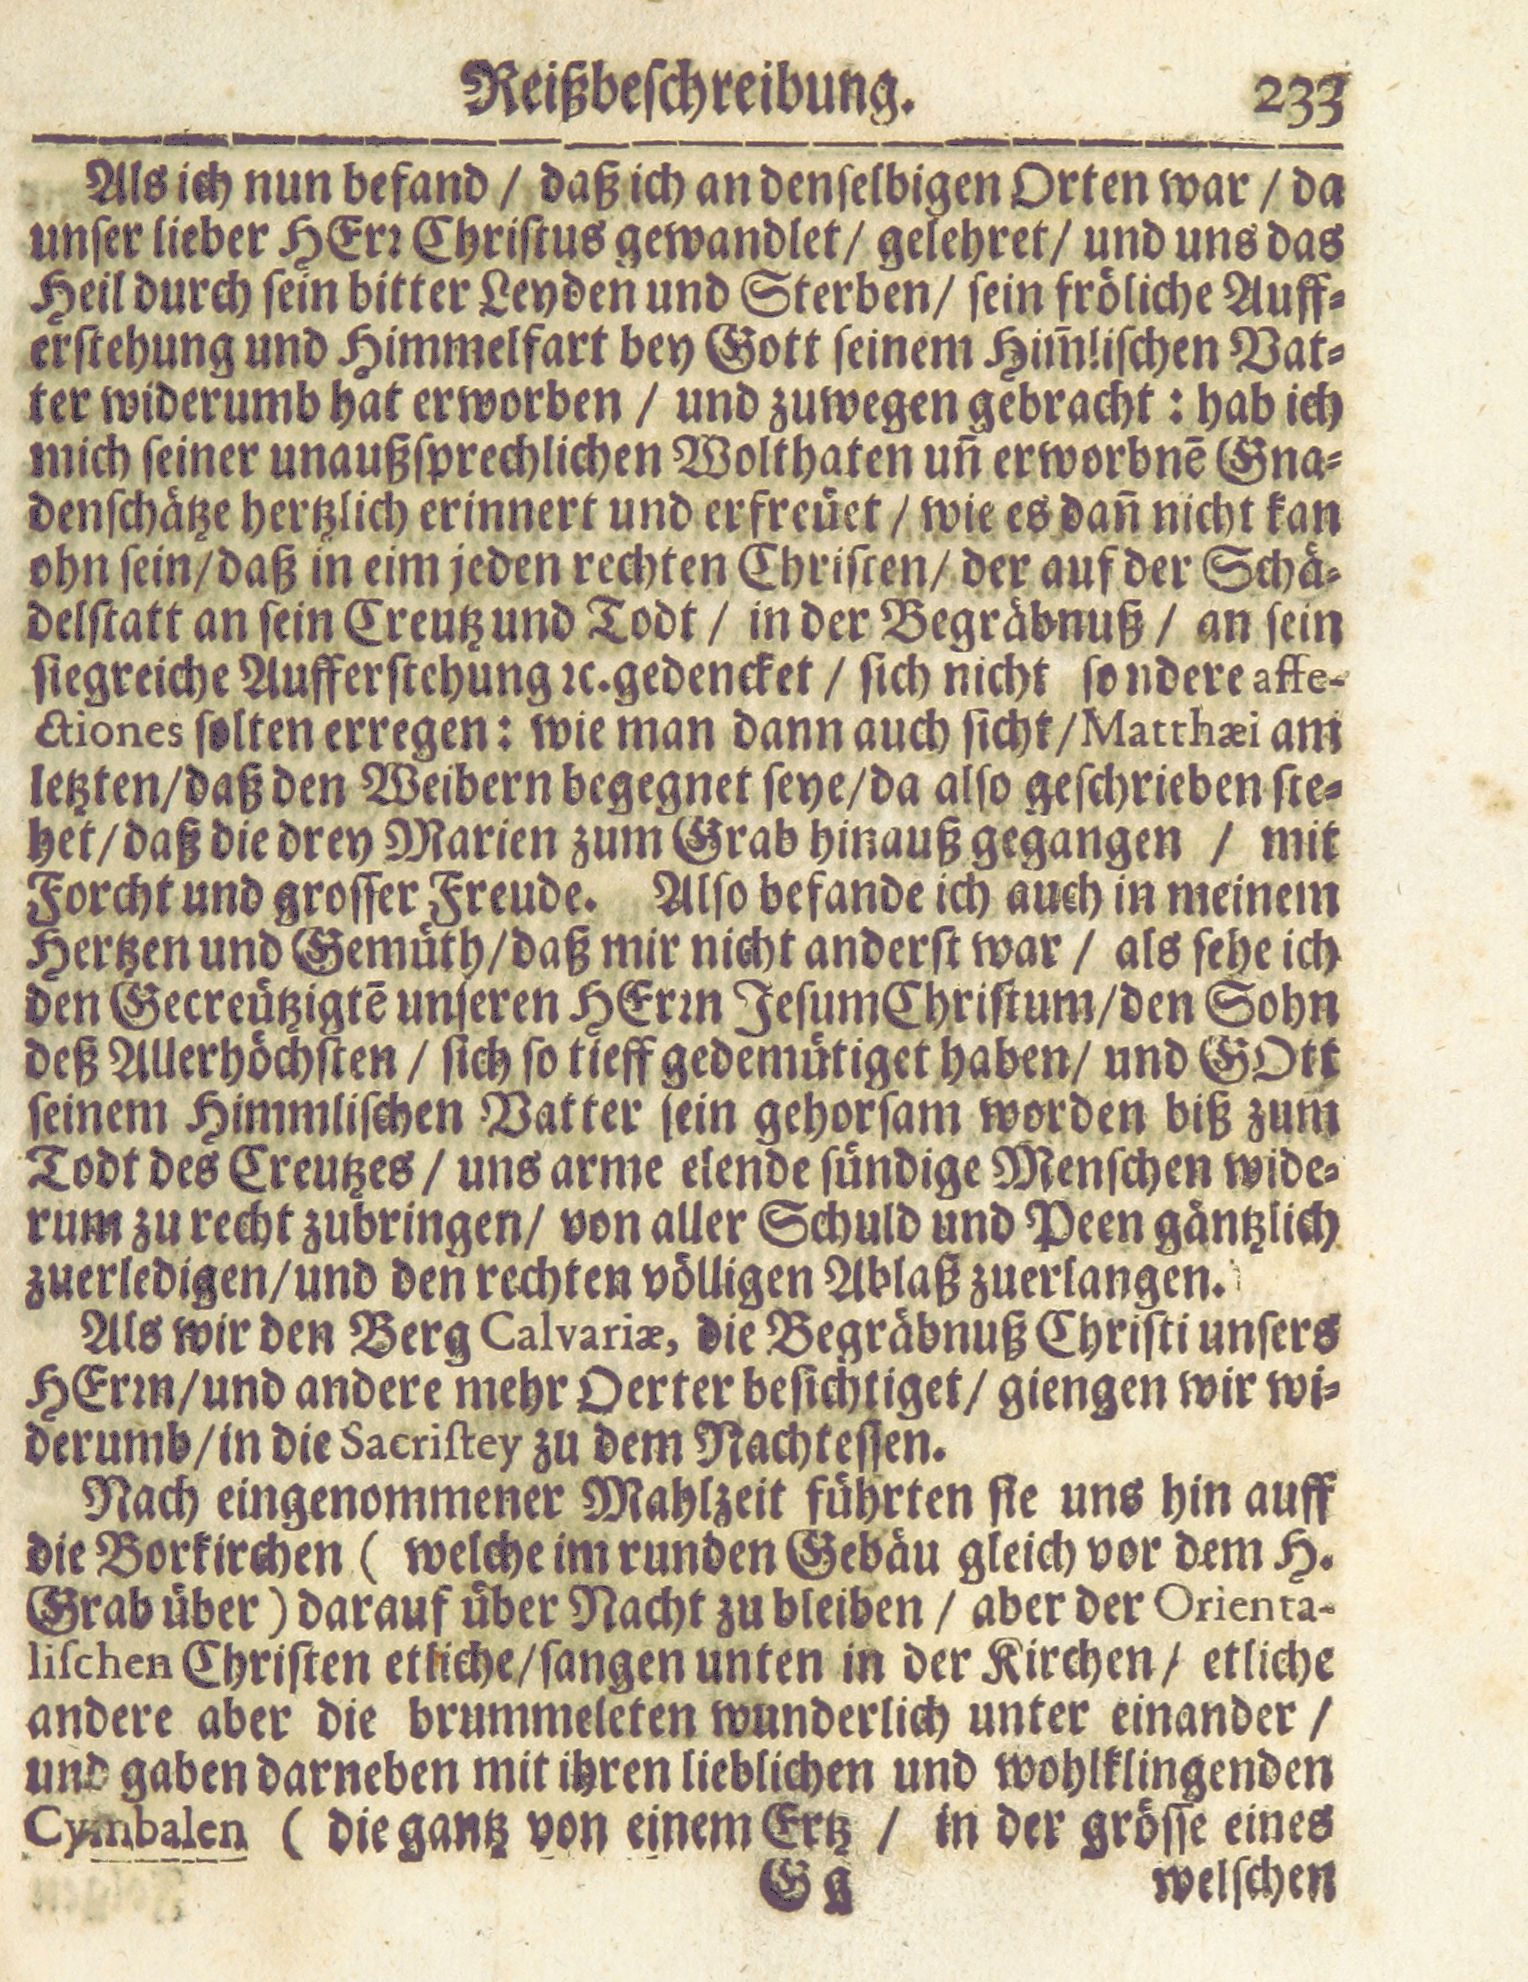 Reißbeſchreibung. 233
Als ich nun befand / daß ich an denſelbigen Orten war / da
unſer lieber HErꝛ Chriſtus gewandlet / gelehret / und uns das
Heil durch ſein bitter Leyden und Sterben / ſein fröliche Auff⸗
erſtehung und Himmelfart bey Gott ſeinem Him̃liſchen Vat⸗
ter widerumb hat erworben / und zuwegen gebracht : hab ich
mich ſeiner unaußſprechlichen Wolthaten uñ erworbnē Gna⸗
denſchätze hertzlich erinnert und erfreüet / wie es dañ nicht kan
ohn ſein / daß in eim jeden rechten Chriſten / der auf der Schä⸗
delſtatt an ſein Creutz und Todt / in der Begräbnuß / an ſein
ſiegreiche Aufferſtehung ꝛc. gedencket / ſich nicht ſondere affe-
ctiones ſolten erregen : wie man dann auch ſicht / Matthæi am
letzten / daß den Weibern begegnet ſeye / da alſo geſchrieben ſte⸗
het / daß die drey Marien zum Grab hinauß gegangen / mit
Forcht und groſſer Freude. Alſo befande ich auch in meinem
Hertzen und Gemüth / daß mir nicht anderſt war / als ſehe ich
den Gecreützigtē unſeren HErꝛn Jeſum Chriſtum / den Sohn
deß Allerhöchſten / ſich ſo tieff gedemütiget haben / und GOtt
ſeinem Himmliſchen Vatter ſein gehorſam worden biß zum
Todt des Creutzes / uns arme elende ſündige Menſchen wide⸗
rum zu recht zubringen / von aller Schuld und Peen gäntzlich
zuerledigen / und den rechten völligen Ablaß zuerlangen.
Als wir den Berg Calvariæ, die Begräbnuß Chriſti unſers
HErꝛn / und andere mehr Oerter beſichtiget / giengen wir wi⸗
derumb / in die Sacriſtey zu dem Nachteſſen.
Nach eingenommener Mahlzeit führten ſie uns hin auff
die Borkirchen ( welche im runden Gebäu gleich vor dem H.
Grab über ) darauf über Nacht zu bleiben / aber der Orienta-
liſchen Chriſten etliche / ſangen unten in der Kirchen / etliche
andere aber die brummeleten wunderlich unter einander /
und gaben darneben mit ihren lieblichen und wohlklingenden
Cymbalen ( die gantz von einem Ertz / in der gröſſe eines
Gg welſchen